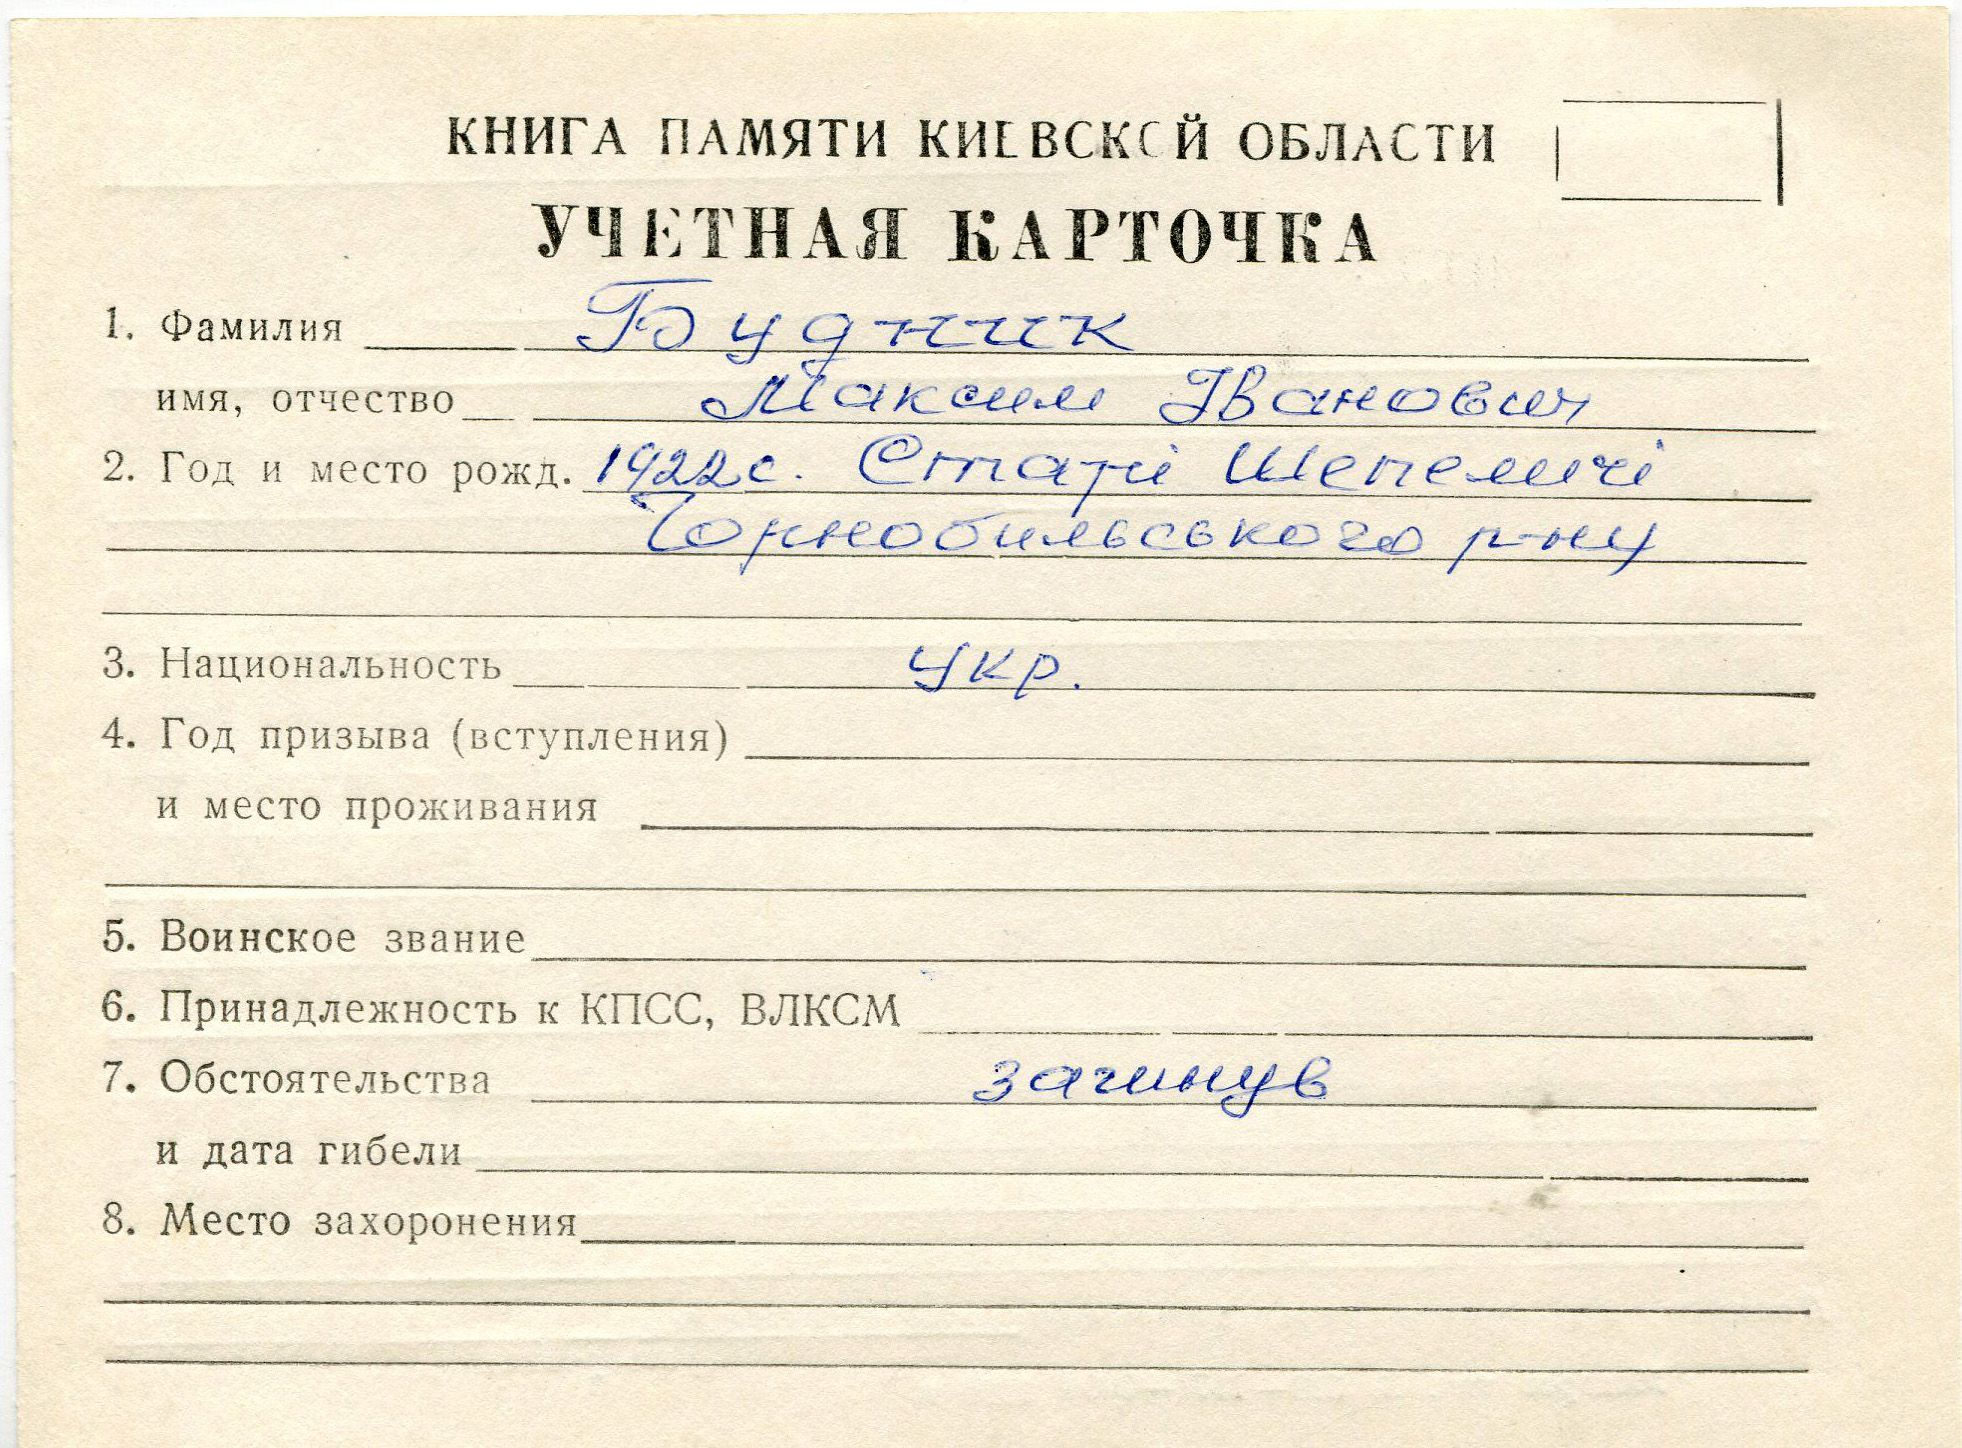 КНИГА ПАМЯТИ КИЕВСКОЙ ОБЛАСТИ
УЧЕТНАЯ КАРТОЧКА
1. Фамилия Будник
имя, отчество Максим Іванович
2. Год и место рожд. 1922 с. Старі Шепеличі
Чорнобильського р-ну
3. Национальность укр.
4. Год призыва (вступления)
и место проживания
5. Воинское звание
6. Принадлежность к КПСС, ВЛКСМ
7. Обстоятельства загинув
и дата гибели
8. Место захоронения